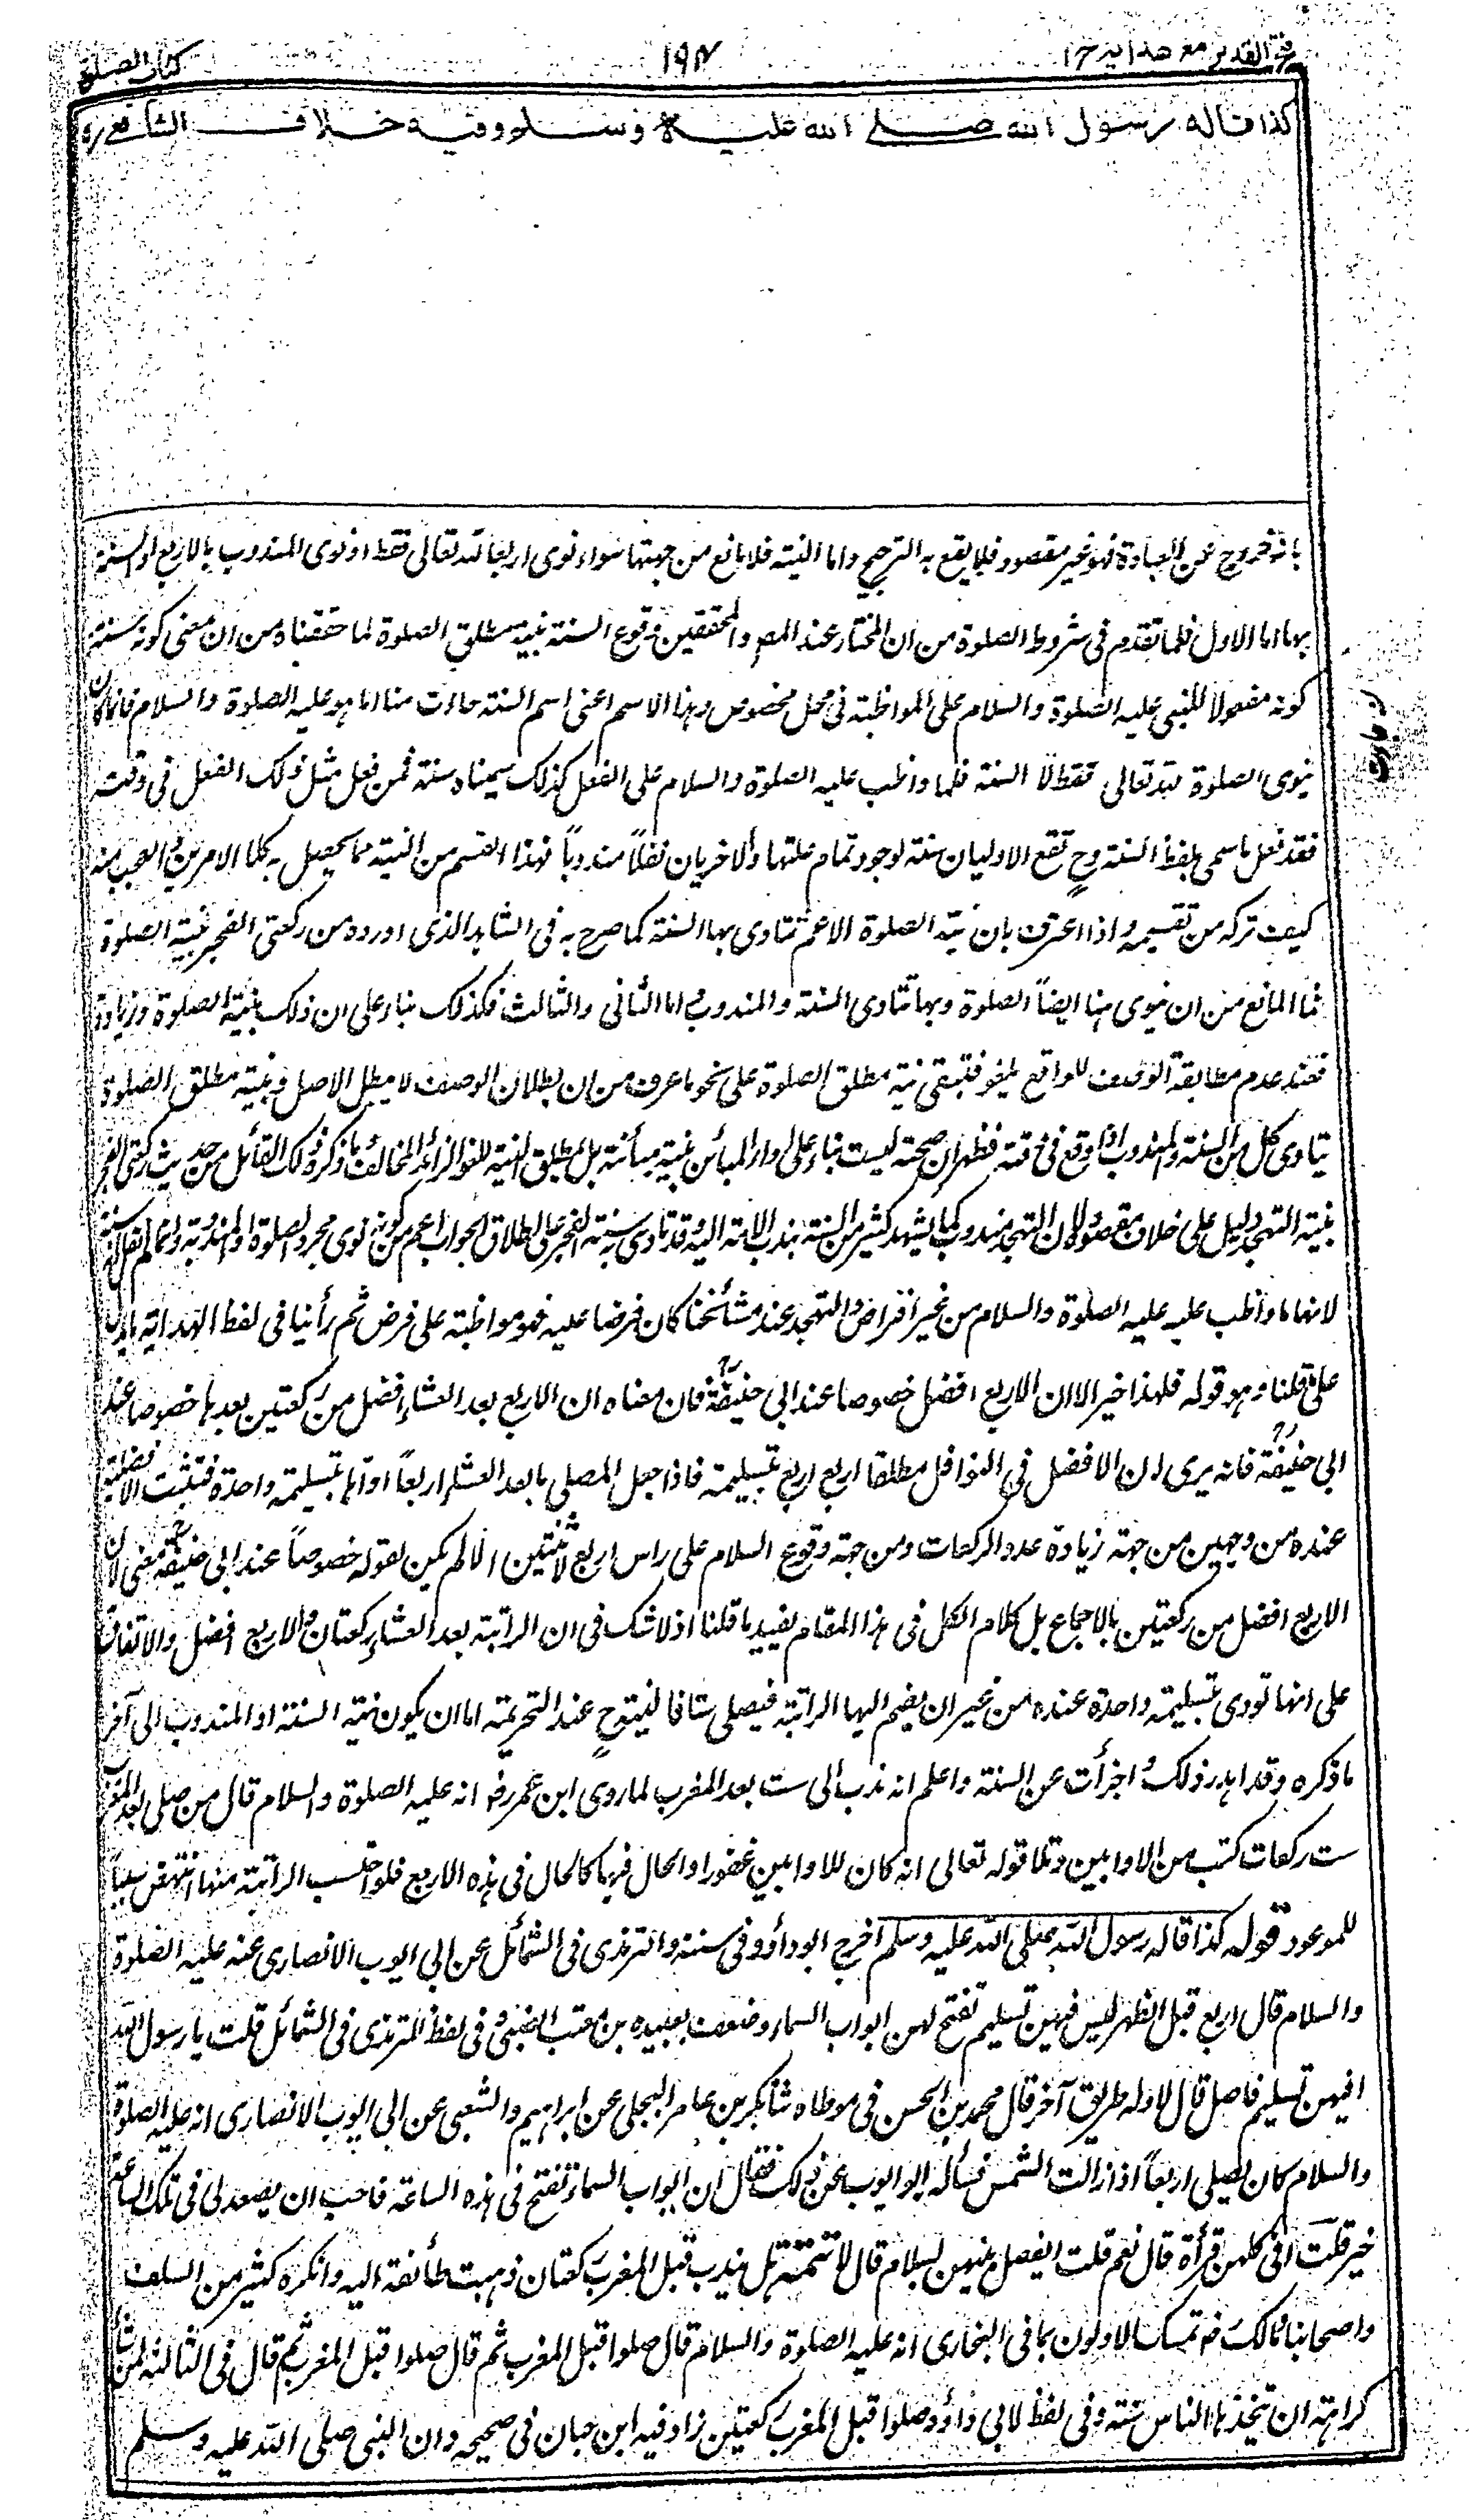 فتح القدير مع هدايه ج ١
١٩٤
كتاب الصلوة
كذا قاله رسول الله صلى الله عليه وسلم وفيه خلاف الشافعي ره
بانه خروج عن العبادة فهو غير مقصود فلا يقع به الترجيح واما النية فلا مانع من جهتها سواء نوى اربعا لله تعالى فقط او نوى المندوب بالاربع او السنة
بها اما الاول فلما تقدم فى شروط الصلوة من ان المختار عند المص والمحققين وقوع السنة بنية مطلق الصلوة لما حققناه من ان معنى كونه سنة
كونه مفعولا للنبى عليه الصلوة والسلام على المواظبة فى محل مخصوص وهذا الاسم اعنى اسم السنة حادث منا اما هو عليه الصلوة والسلام فانما كان
ينوى الصلوة لله تعالى فقط لا السنة فلما واظب عليه الصلوة والسلام على الفعل كذلك سميناه سنة فمن فعل مثل ذلك الفعل فى وقته
فقد فعل ما سمى بلفظ السنة وح تقع الاوليان سنة لوجود تمام علتها والاخريان نفلاً مندوباً فهذا القسم من النية مما يحصل به كلا الامرين والعجب منه
كيف تركه من تقسيمه واذا اعترف بان نية الصلوة الاعم تتادى بها السنة كما صرح به فى الشاهد الذى اورده من ركعتى الفجر بنية الصلوة
فما المانع من ان ينوى هنا ايضاً الصلوة وبها تتادى السنة والمندوب اما الثانى والثالث فكذلك بناء على ان ذلك بنية الصلوة وزيادة
فعند عدم مطابقة الوصف للواقع يلغو فتبقى نية مطلق الصلوة على نحو ما عرف من ان بطلان الوصف لا يبطل الاصل وبنية مطلق الصلوة
يتادى كل من السنة والمندوب اذا وقع فى وقته فظهر ان صحته ليست بناء على ادار المبائن بنية مبائنه بل بمطلق النية للغو الزائد المخالف وما ذكره ذلك القائل من حديث ركعتى الفجر
بنية التهجد دليل على خلاف مقصوده لان التهجد مندوب كما يشهد كثير من السنة بندب الامة اليه وقد تادى به سنة الفجر على اطلاق الجواب اعم من كونه نوى مجرد الصلوة او المندوبة وانما لم نقل انه سنة
لانها ما واظب عليه عليه الصلوة والسلام من غير افتراض والتهجد عند مشائخنا كان فرضا عليه فهو مواظبة على فرض ثم رأينا فى لفظ الهداية ما يدل
على ما قلنا وهو قوله فلهذا خير الا ان الاربع افضل خصوصا عند ابى حنيفة فان معناه ان الاربع بعد العشاء افضل من ركعتين بعدها خصوصا عند
ابى حنيفة فانه يرى ان الافضل فى النوافل مطلقا اربع اربع بتسليمة فاذا جعل المصلى ما بعد العشاء اربعاً اداها بتسليمة واحدة فتثبت الافضلية
عنده من وجهين من جهة زيادة عدد الركعات ومن جهة وقوع السلام على راس اربع لا ثنتين والا لم يكن لقوله خصوصاً عند ابى حنيفة معنى لان
الاربع افضل من ركعتين بالاجماع بل كلام الكل فى هذا المقام يفيد ما قلنا اذ لا شك فى ان الراتبة بعد العشاء ركعتان والاربع افضل والاتفاق
على انها تودى بتسليمة واحدة عنده من غير ان يضم اليها الراتبة فيصلى ستا فالنية ح عند التحريمة اما ان يكون نية السنة او المندوب الى آخر
ما ذكره وقد اهدر ذلك واجزأت عن السنة واعلم انه ندب الى ست بعد المغرب لما روى ابن عمر رض انه عليه الصلوة والسلام قال من صلى بعد المغرب
ست ركعات كتب من الاوابين وتلا قوله تعالى انه كان للاوابين غفورا والحال فيها كالحال فى هذه الاربع فلو احتسب الراتبة منها انتهض سبباً
للموعود قوله كذا قاله رسول الله صلى الله عليه وسلم اخرج ابو داؤد فى سننه والترمذى فى الشمائل عن ابى ايوب الانصارى عنه عليه الصلوة
والسلام قال اربع قبل الظهر ليس فيهن تسليم تفتح لهن ابواب السماء وضعف بعبيده بن معتب الضبى وفى لفظ للترمذى فى الشمائل قلت يا رسول الله
افيهن تسليم فاصل قال لا وله طريق آخر قال محمد بن الحسن فى موطاه ثنا بكير بن عامر البجلى عن ابراهيم والشعبى عن ابى ايوب الانصارى انه عليه الصلوة
والسلام كان يصلى اربعاً اذا زالت الشمس فسأله ابو ايوب عن ذلك فقال ان ابواب السماء تفتح فى هذه الساعة فاحب ان يصعد لى فى تلك الساعة
خير قلت افى كلهن قرأة قال نعم قلت ايفصل بينهن بسلام قال لا تتمة هل يندب قبل المغرب ركعتان ذهبت طائفة اليه وانكره كثير من السلف
واصحابنا ومالك رض تمسك الاولون بما فى البخارى انه عليه الصلوة والسلام قال صلوا قبل المغرب ثم قال صلوا قبل المغرب ثم قال فى الثالثة لمن شاء
كراهة ان يتخذها الناس سنة وفى لفظ لابى داؤد صلوا قبل المغرب ركعتين زاد فيه ابن حبان فى صحيحه وان النبى صلى الله عليه وسلم